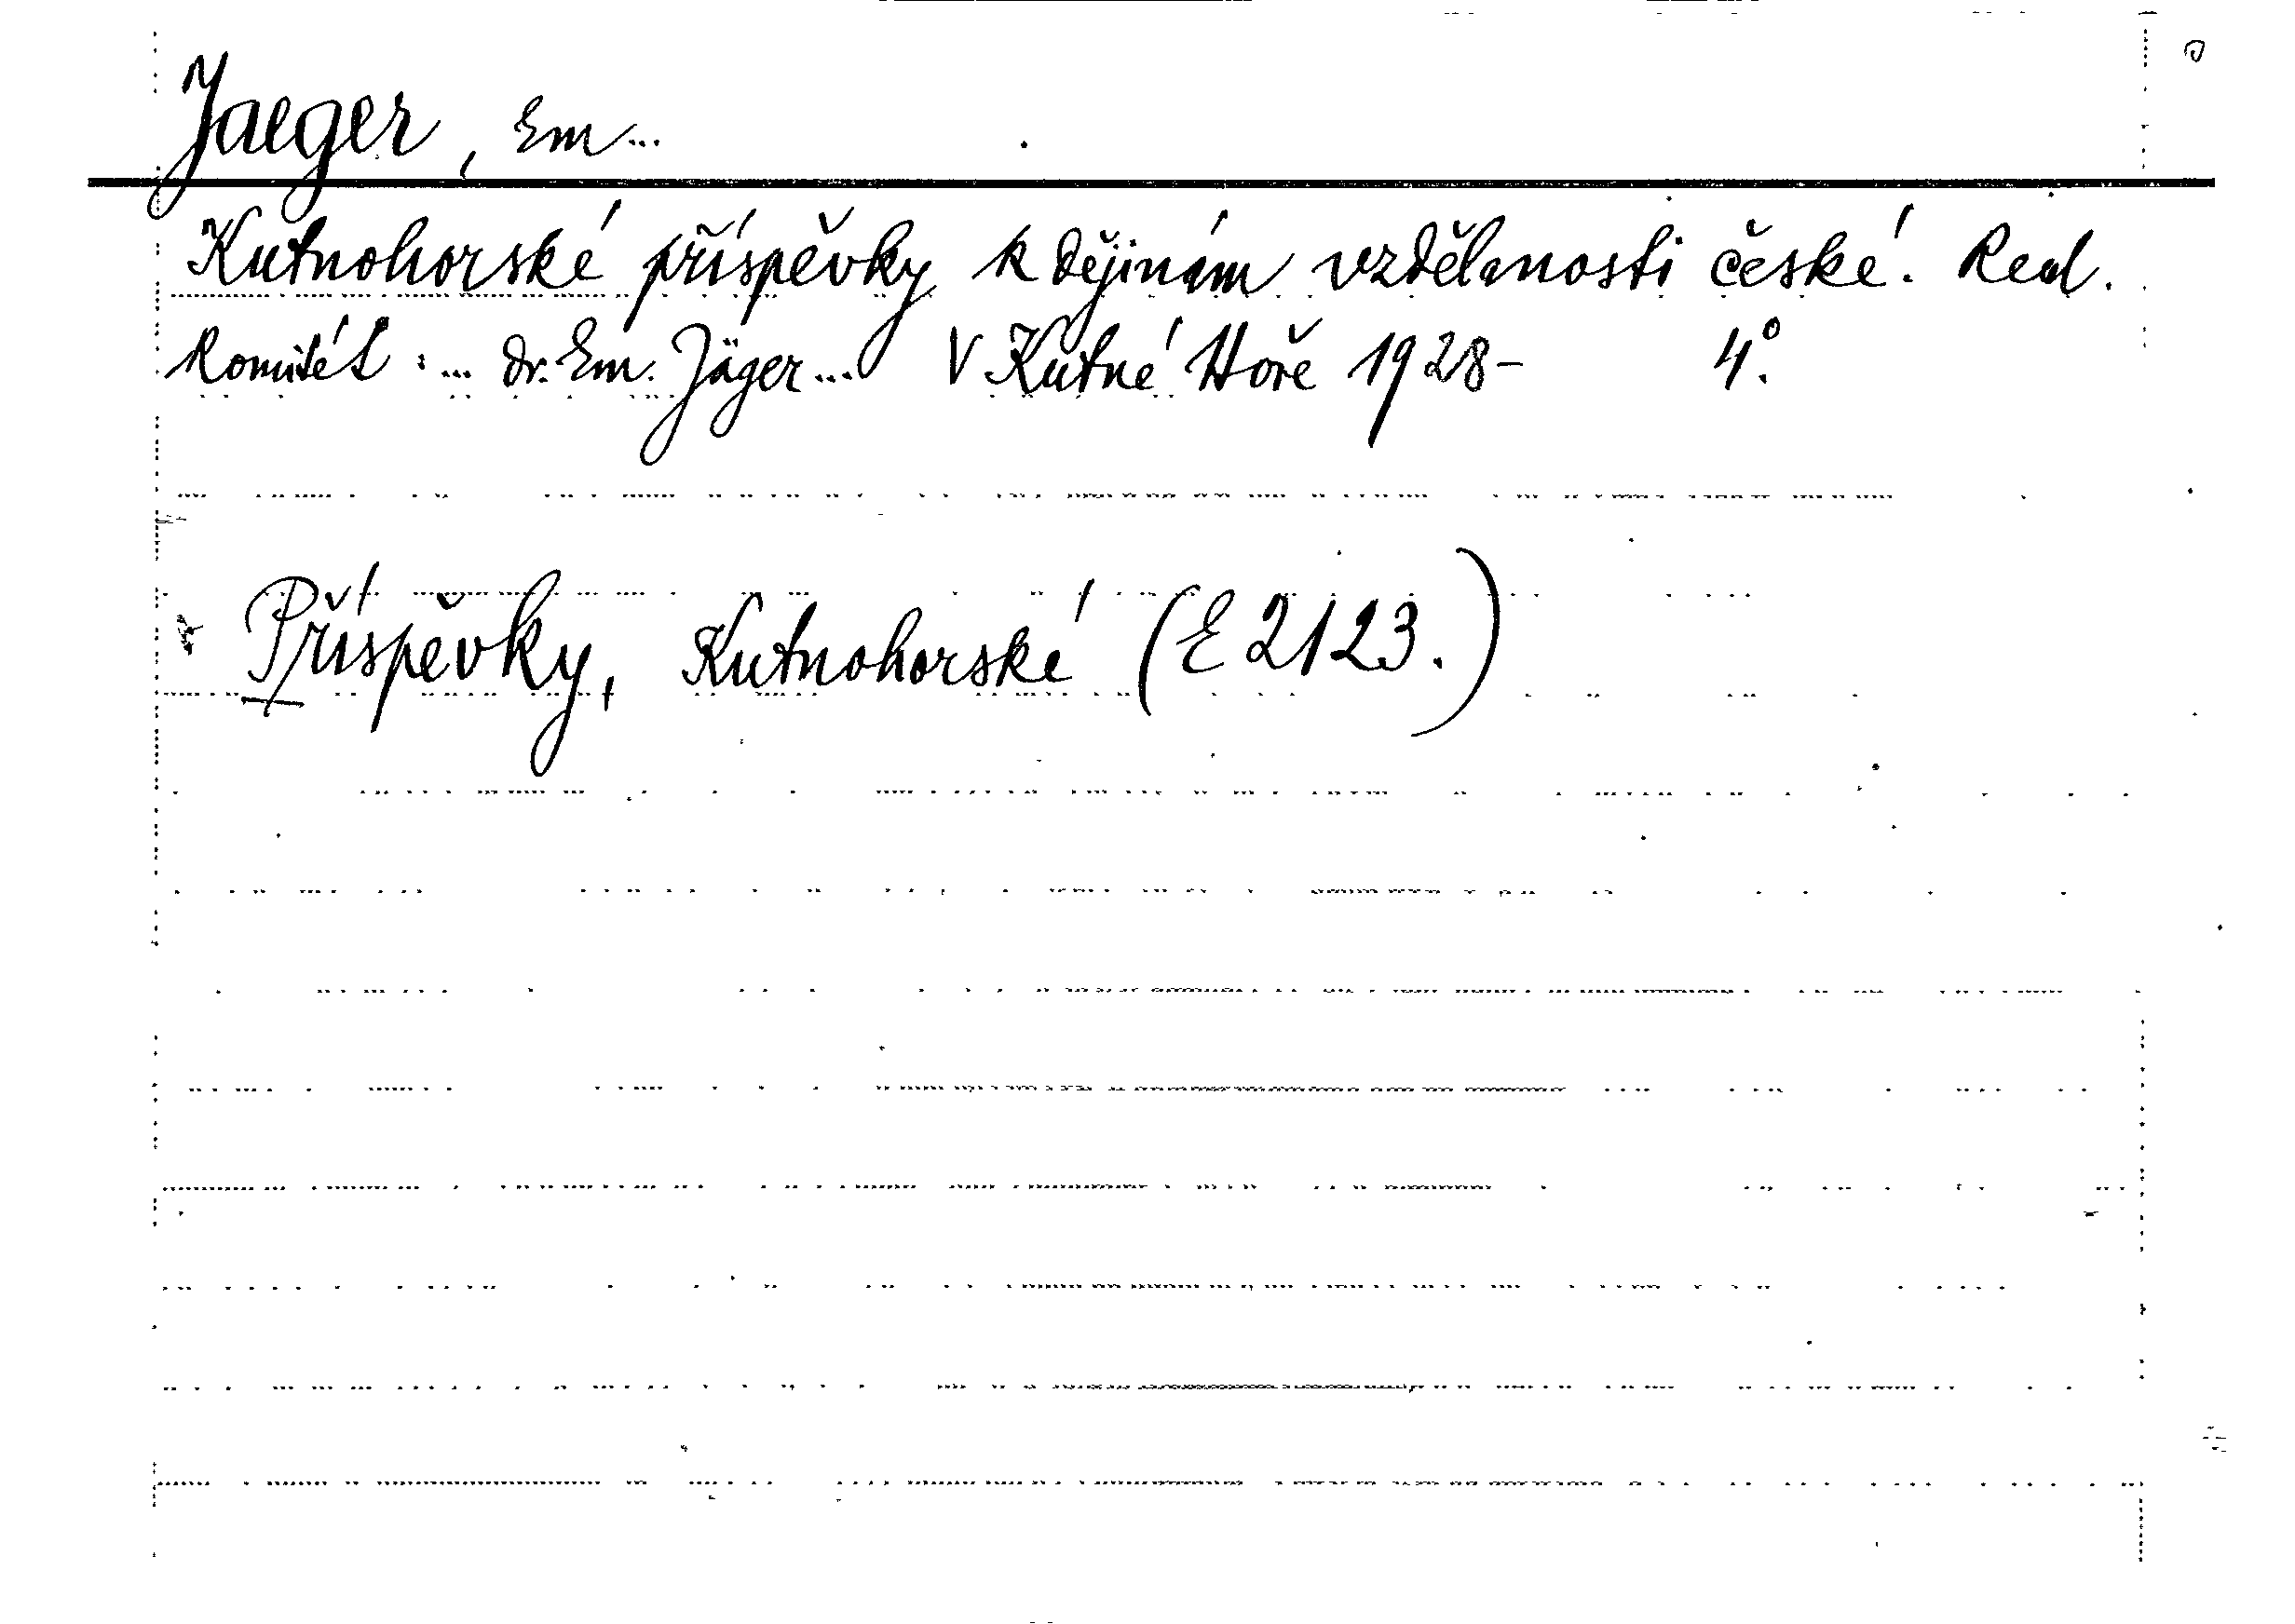 Jaeger, Em...
Kutnohorské příspěvky k dějinám vzdělanosti české. Red.
Komitét: ... Dr. Em. Jäger... V Kutné Hoře 1928- 4°.
Příspěvky, Kutnohorské (E 2123.)